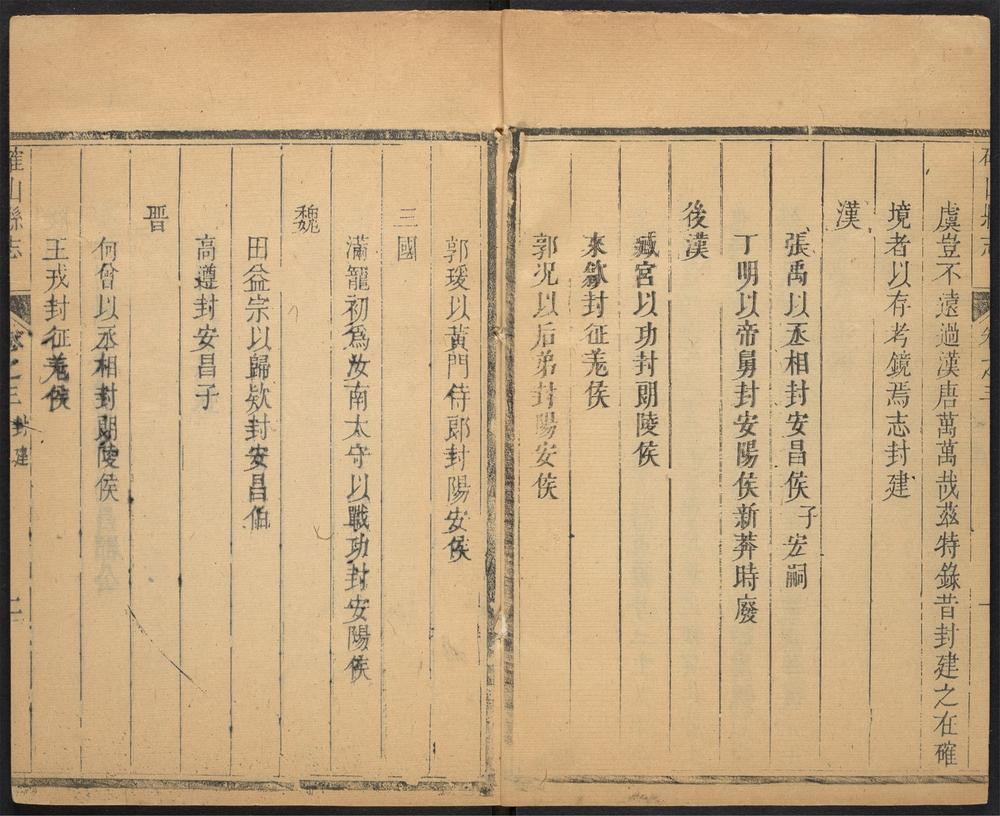 確山縣志 卷之三 一
虞豈不遠過漢唐萬萬哉茲特錄昔封建之在確
境者以存考鏡焉志封建
漢
張禹以丞相封安昌侯子宏嗣
丁明以帝舅封安陽侯新莽時廢
後漢
臧宮以功封朗陵侯
來歙封征羗侯
郭况以后弟封陽安侯
郭瑗以黃門侍郎封陽安侯
三國
滿寵初爲汝南太守以戰功封安陽侯
魏
田益宗以歸欵封安昌伯
高遵封安昌子
晋
何曾以丞相封朗陵侯
王戎封征羗侯
確山縣志 卷之三 封建 二